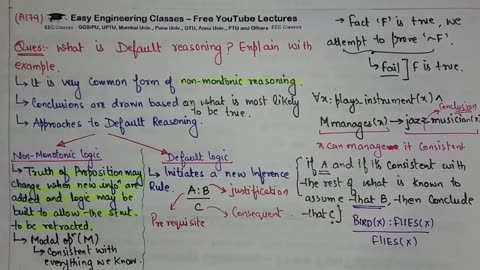 (AI74)
Easy Engineering Classes – Free YouTube Lectures
EEC Classes
GGSIPU, UPTU, Mumbai Univ., Pune Univ., GTU, Anna Univ., PTU and Others
EEC Classes
Ques:- What is Default reasoning? Explain with
example.
↳ It is very Common form of non-montonic reasoning.
↳ Conclusions are drawn based on what is most likely
to be true.
↳ Approaches to Default Reasoning.
Non-Monotonic logic
↳ Truth of Proposition may
change when new infoⁿ are
added and logic may be
built to allow the stmt.
to be retracted.
↳ Modal opʳ (M)
↳ Consistent with
everything we know.
Default logic
↳ Initiates a new Inference
Rule.
A : B
C
justification
Prerequisite
Consequent.
→ Fact 'F' is true, we
attempt to prove '~F'
↳ Fail ] F is true.
∀x: plays instrument(x) ∧
Conclusion
M manages(x) → jazz musician(x)
x can manage it consistent
{ if A and if its consistent with
the rest of what is known to
assume that B, then conclude
that C }
BIRD(x) : FlIES(x)
FlIES(x)